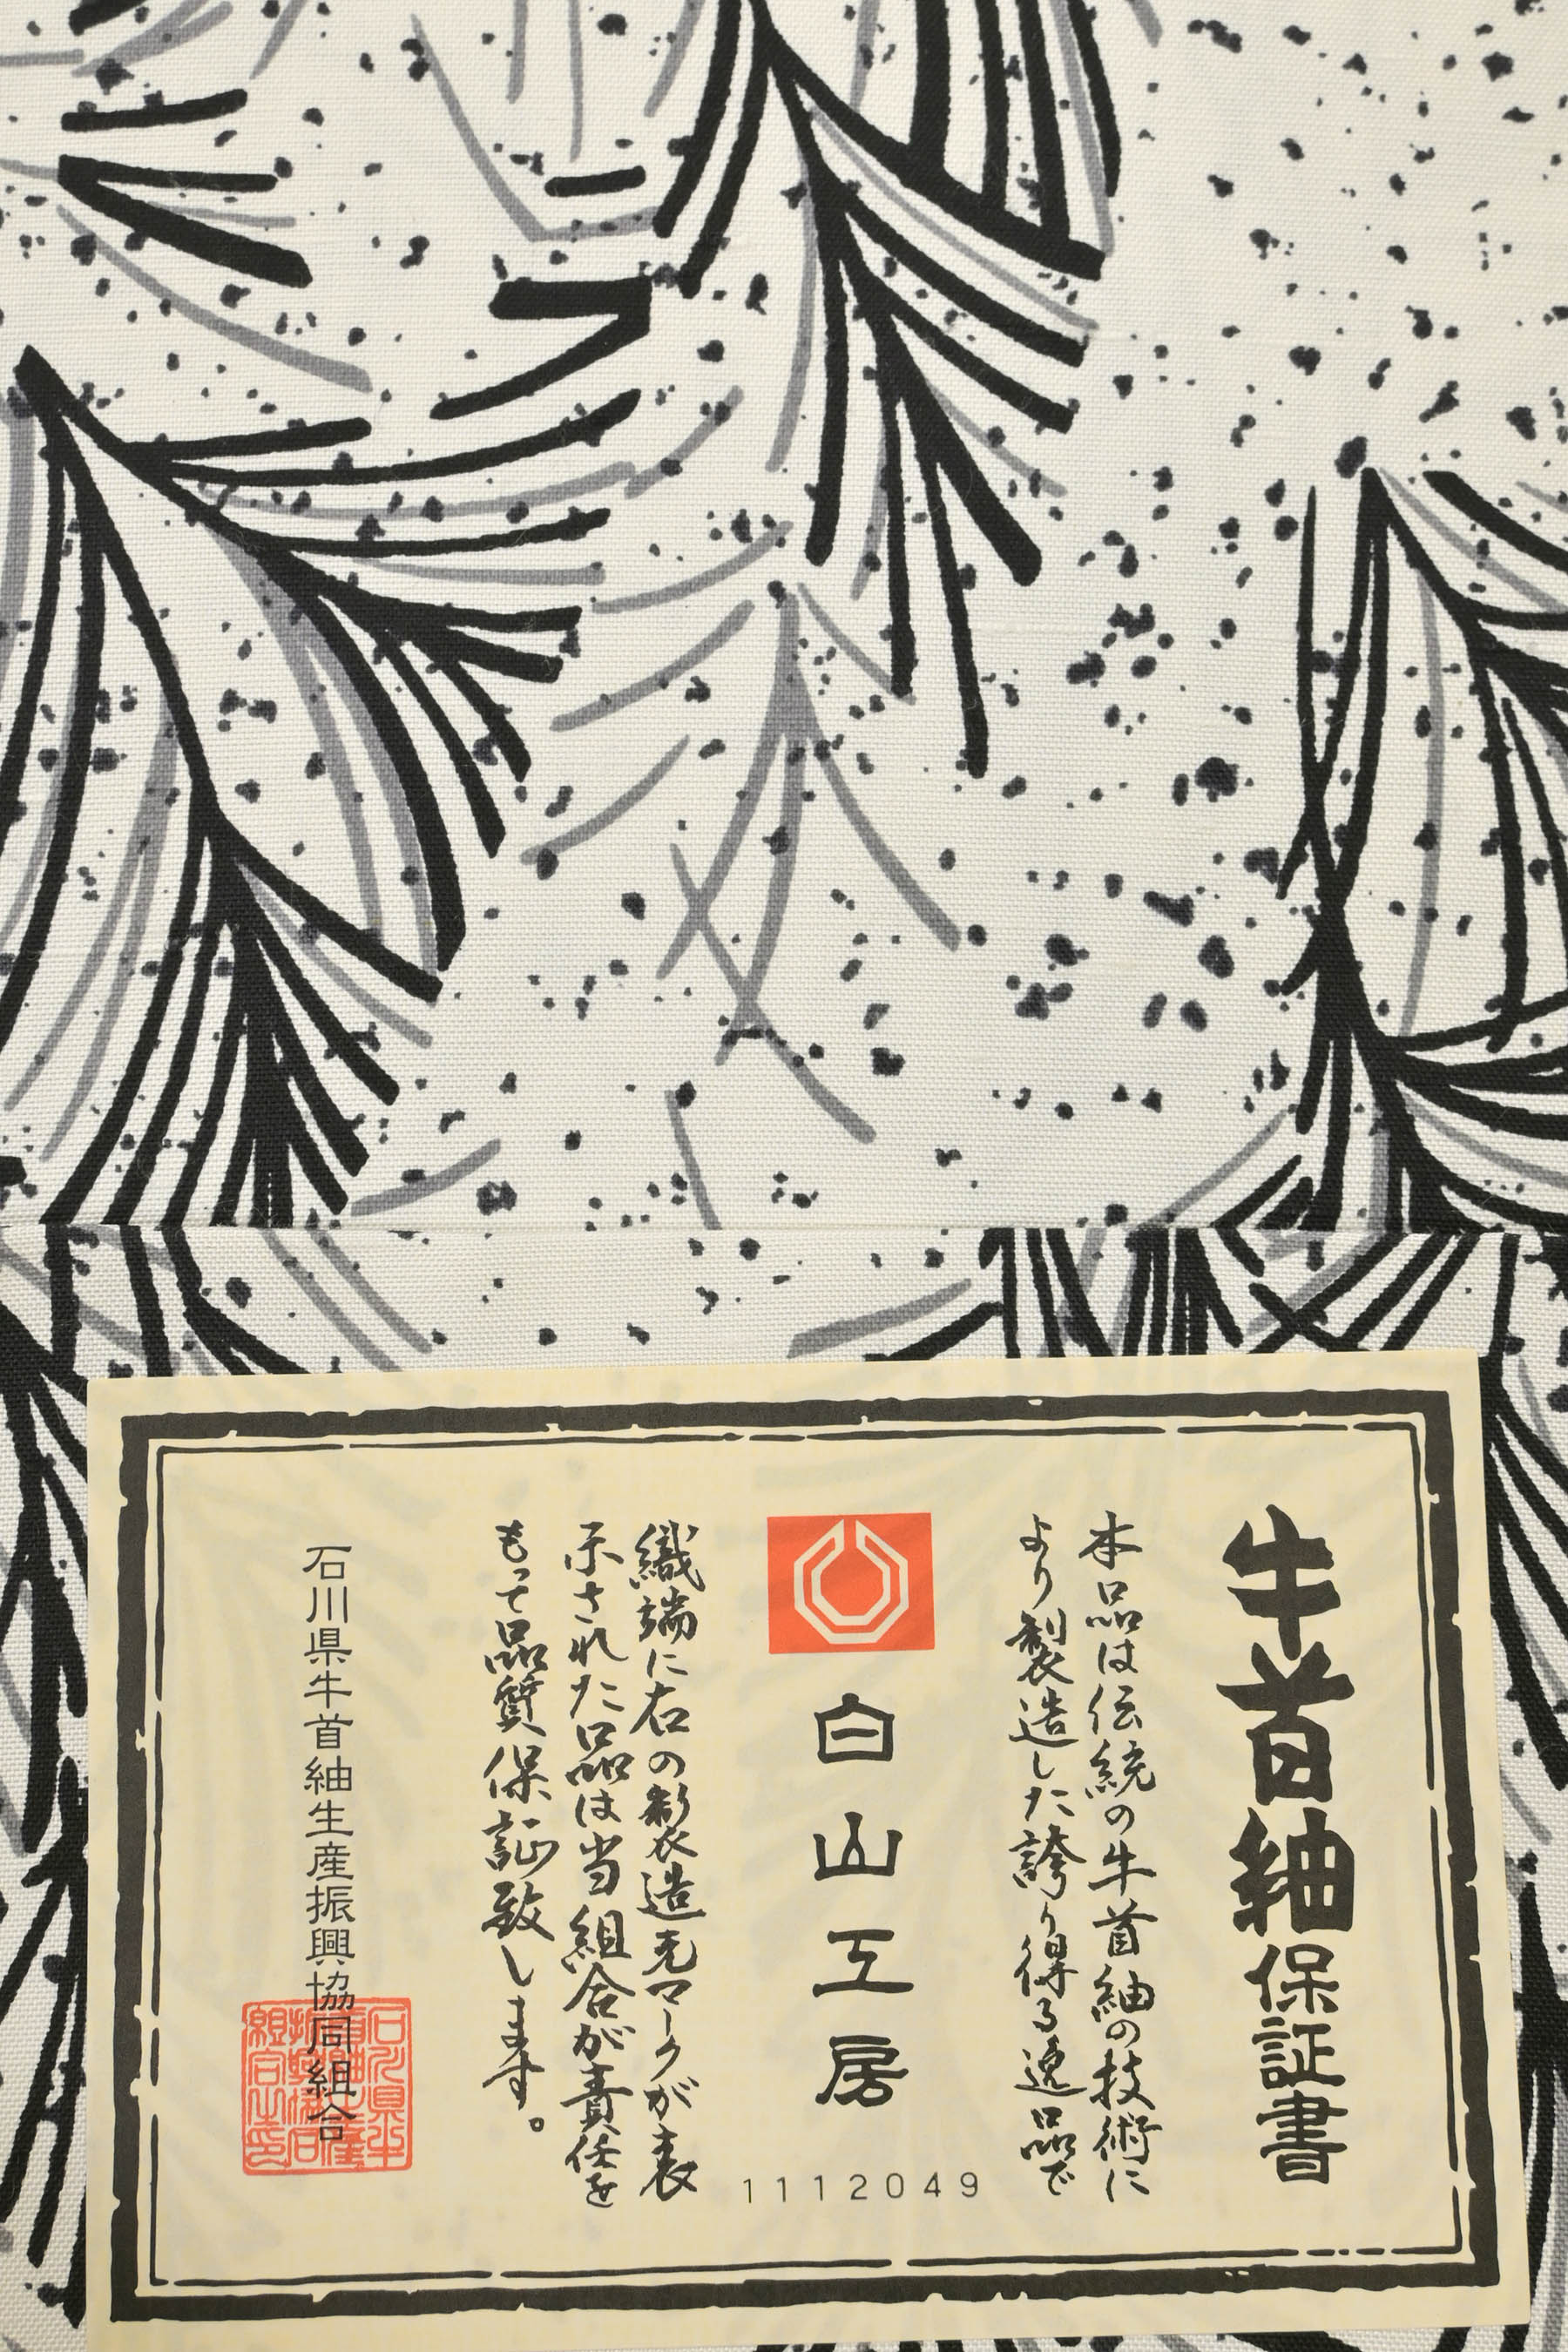 牛首紬保証書
本品は伝統の牛首紬の技術に
より製造した誇り得る逸品で
白山工房
1112049
織端に右の製造元マークが表
示された品は当組合が責任を
もって品質保証致します。
石川県牛首紬生産振興協同組合